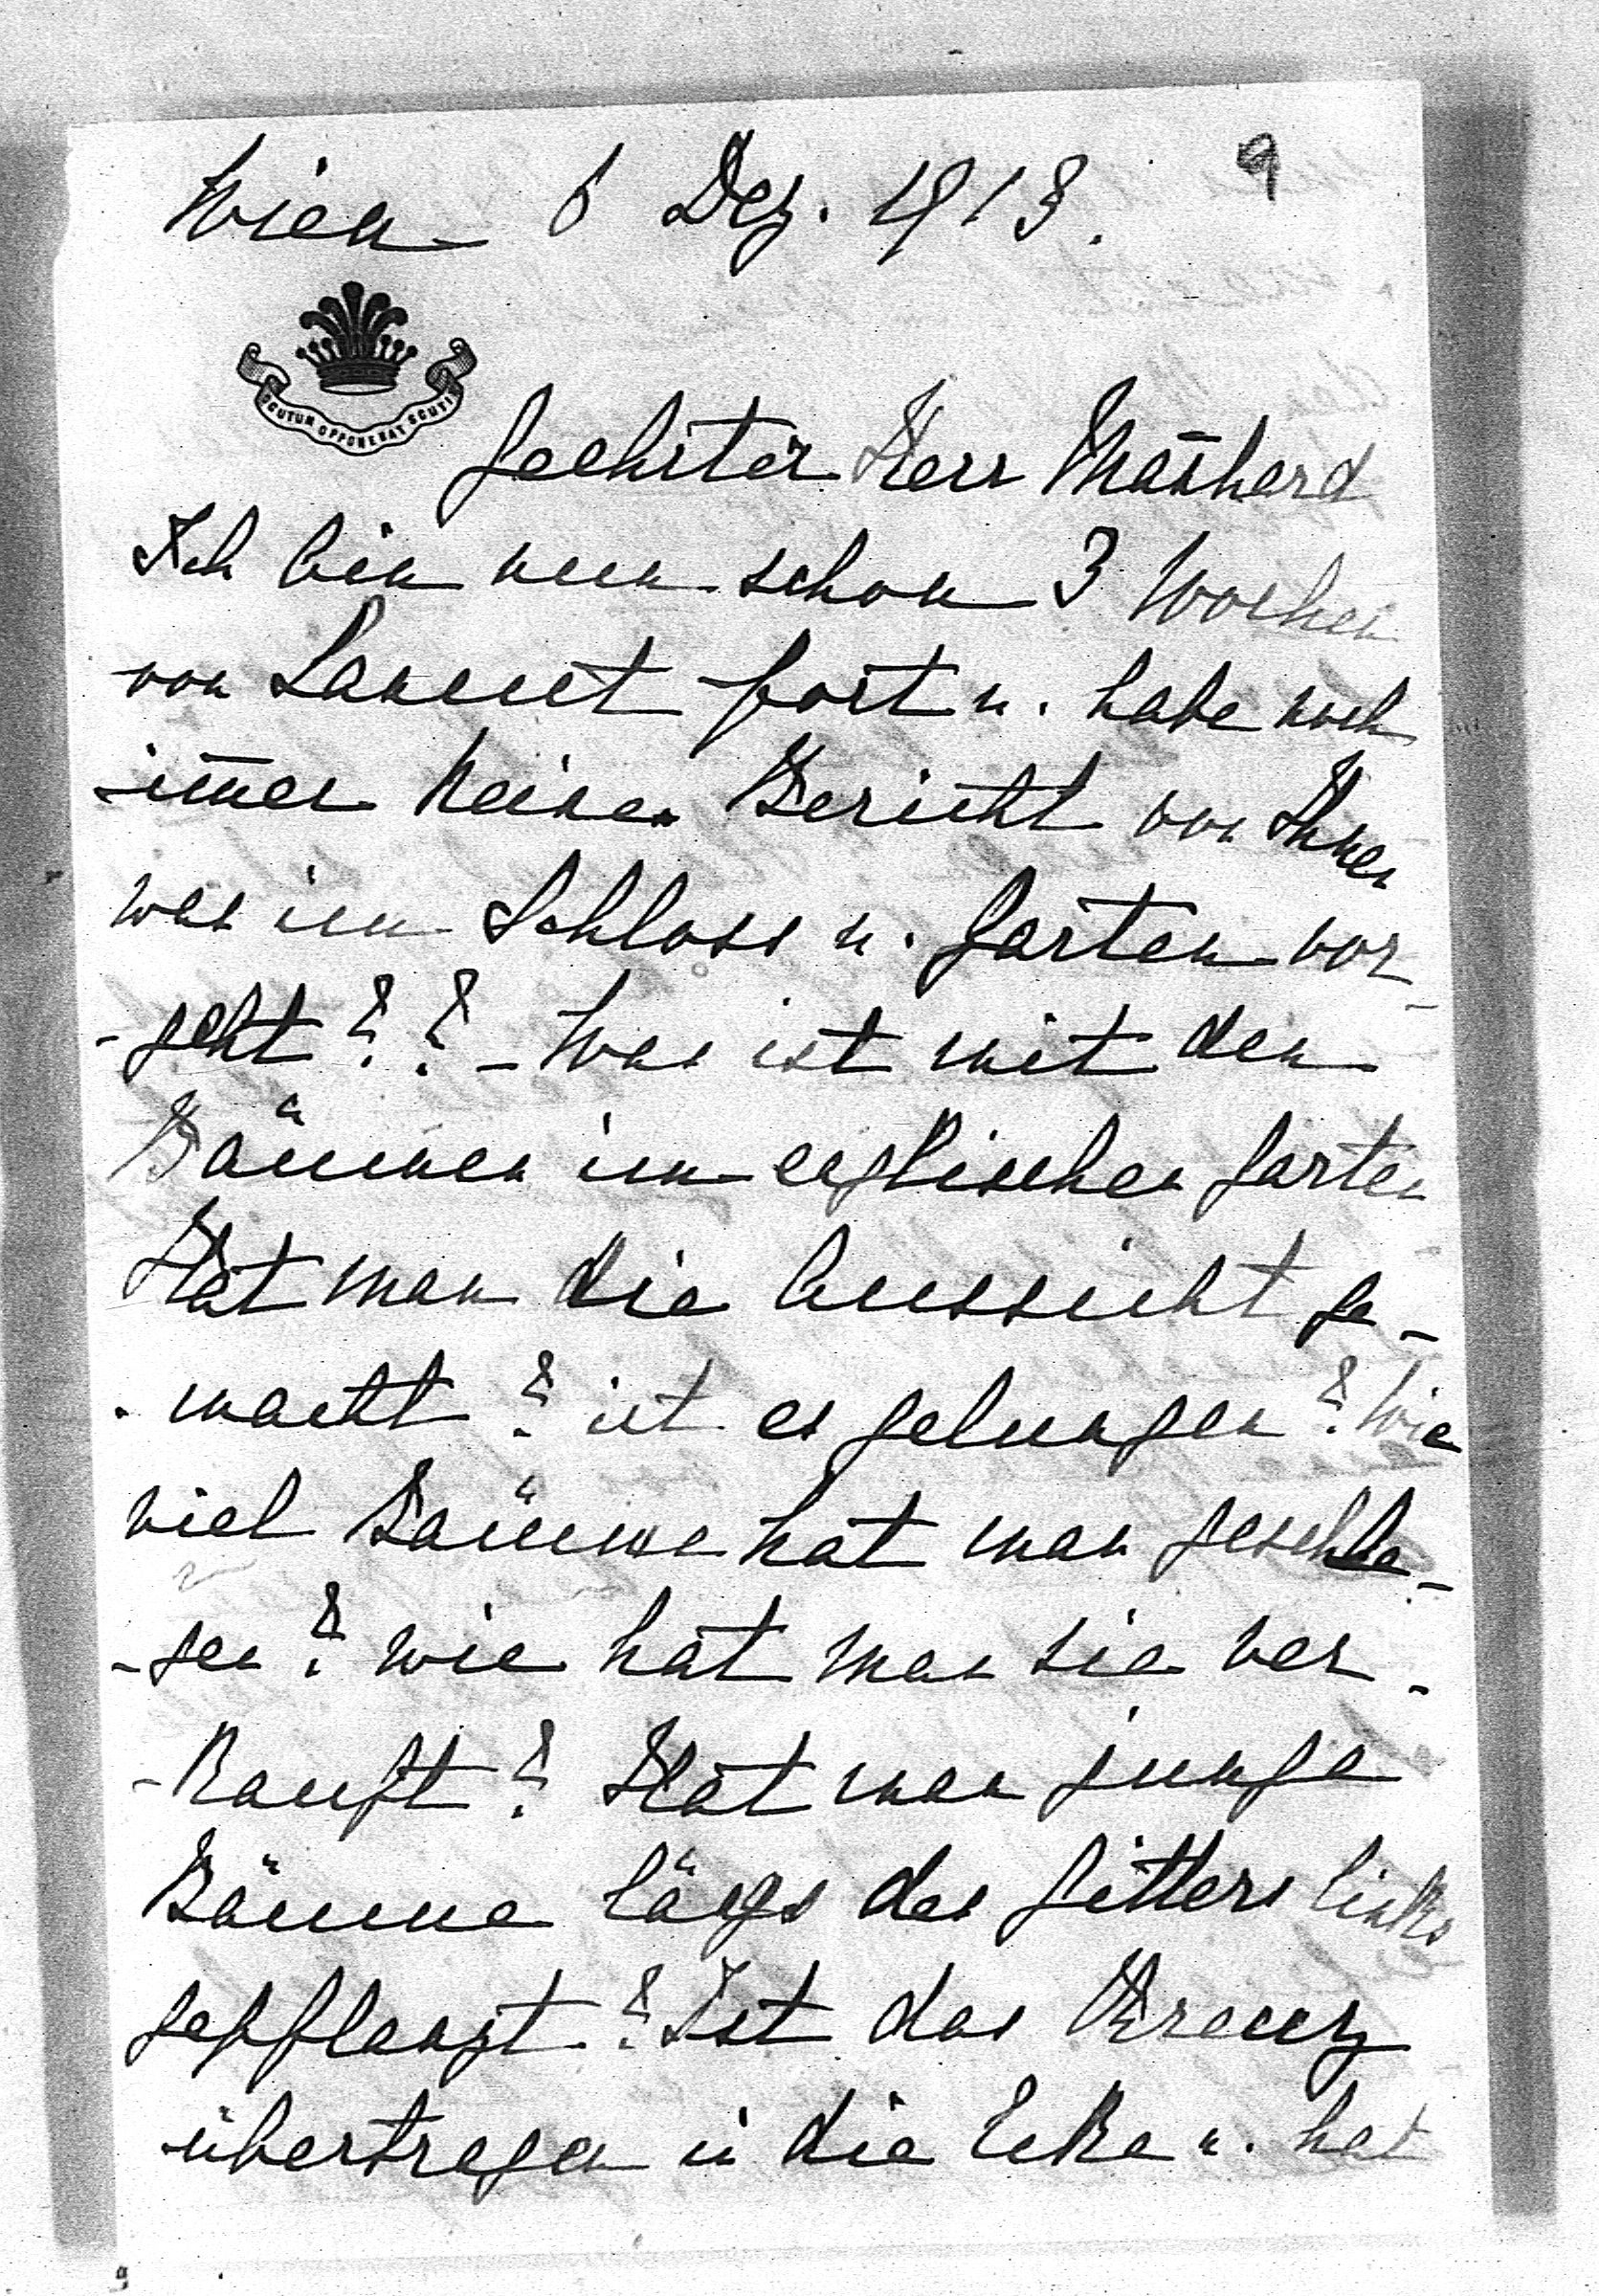 Wien 6 Dez. 1913.
9
SCUTUM OPPONEBAT SCUTI
Geehrter Herr
Ich bin nun schon 3 Wochen
von Lancut fort u. habe noch
im̄er keinen Bericht von Ihnen
was im Schloss u. Garten vor-
-geht?? - Was ist mit den
Bäumen im englischen Garten
Hat man die Aussicht ge-
-macht? ist es gelungen? Wie
viel Bäume hat man geschla-
-gen? wie hat man sie ver-
-kauft? Hat man junge
Bäume längs des Gitters links
gepflanzt? Ist das Kreuz
übertragen in die Ecke u. hat